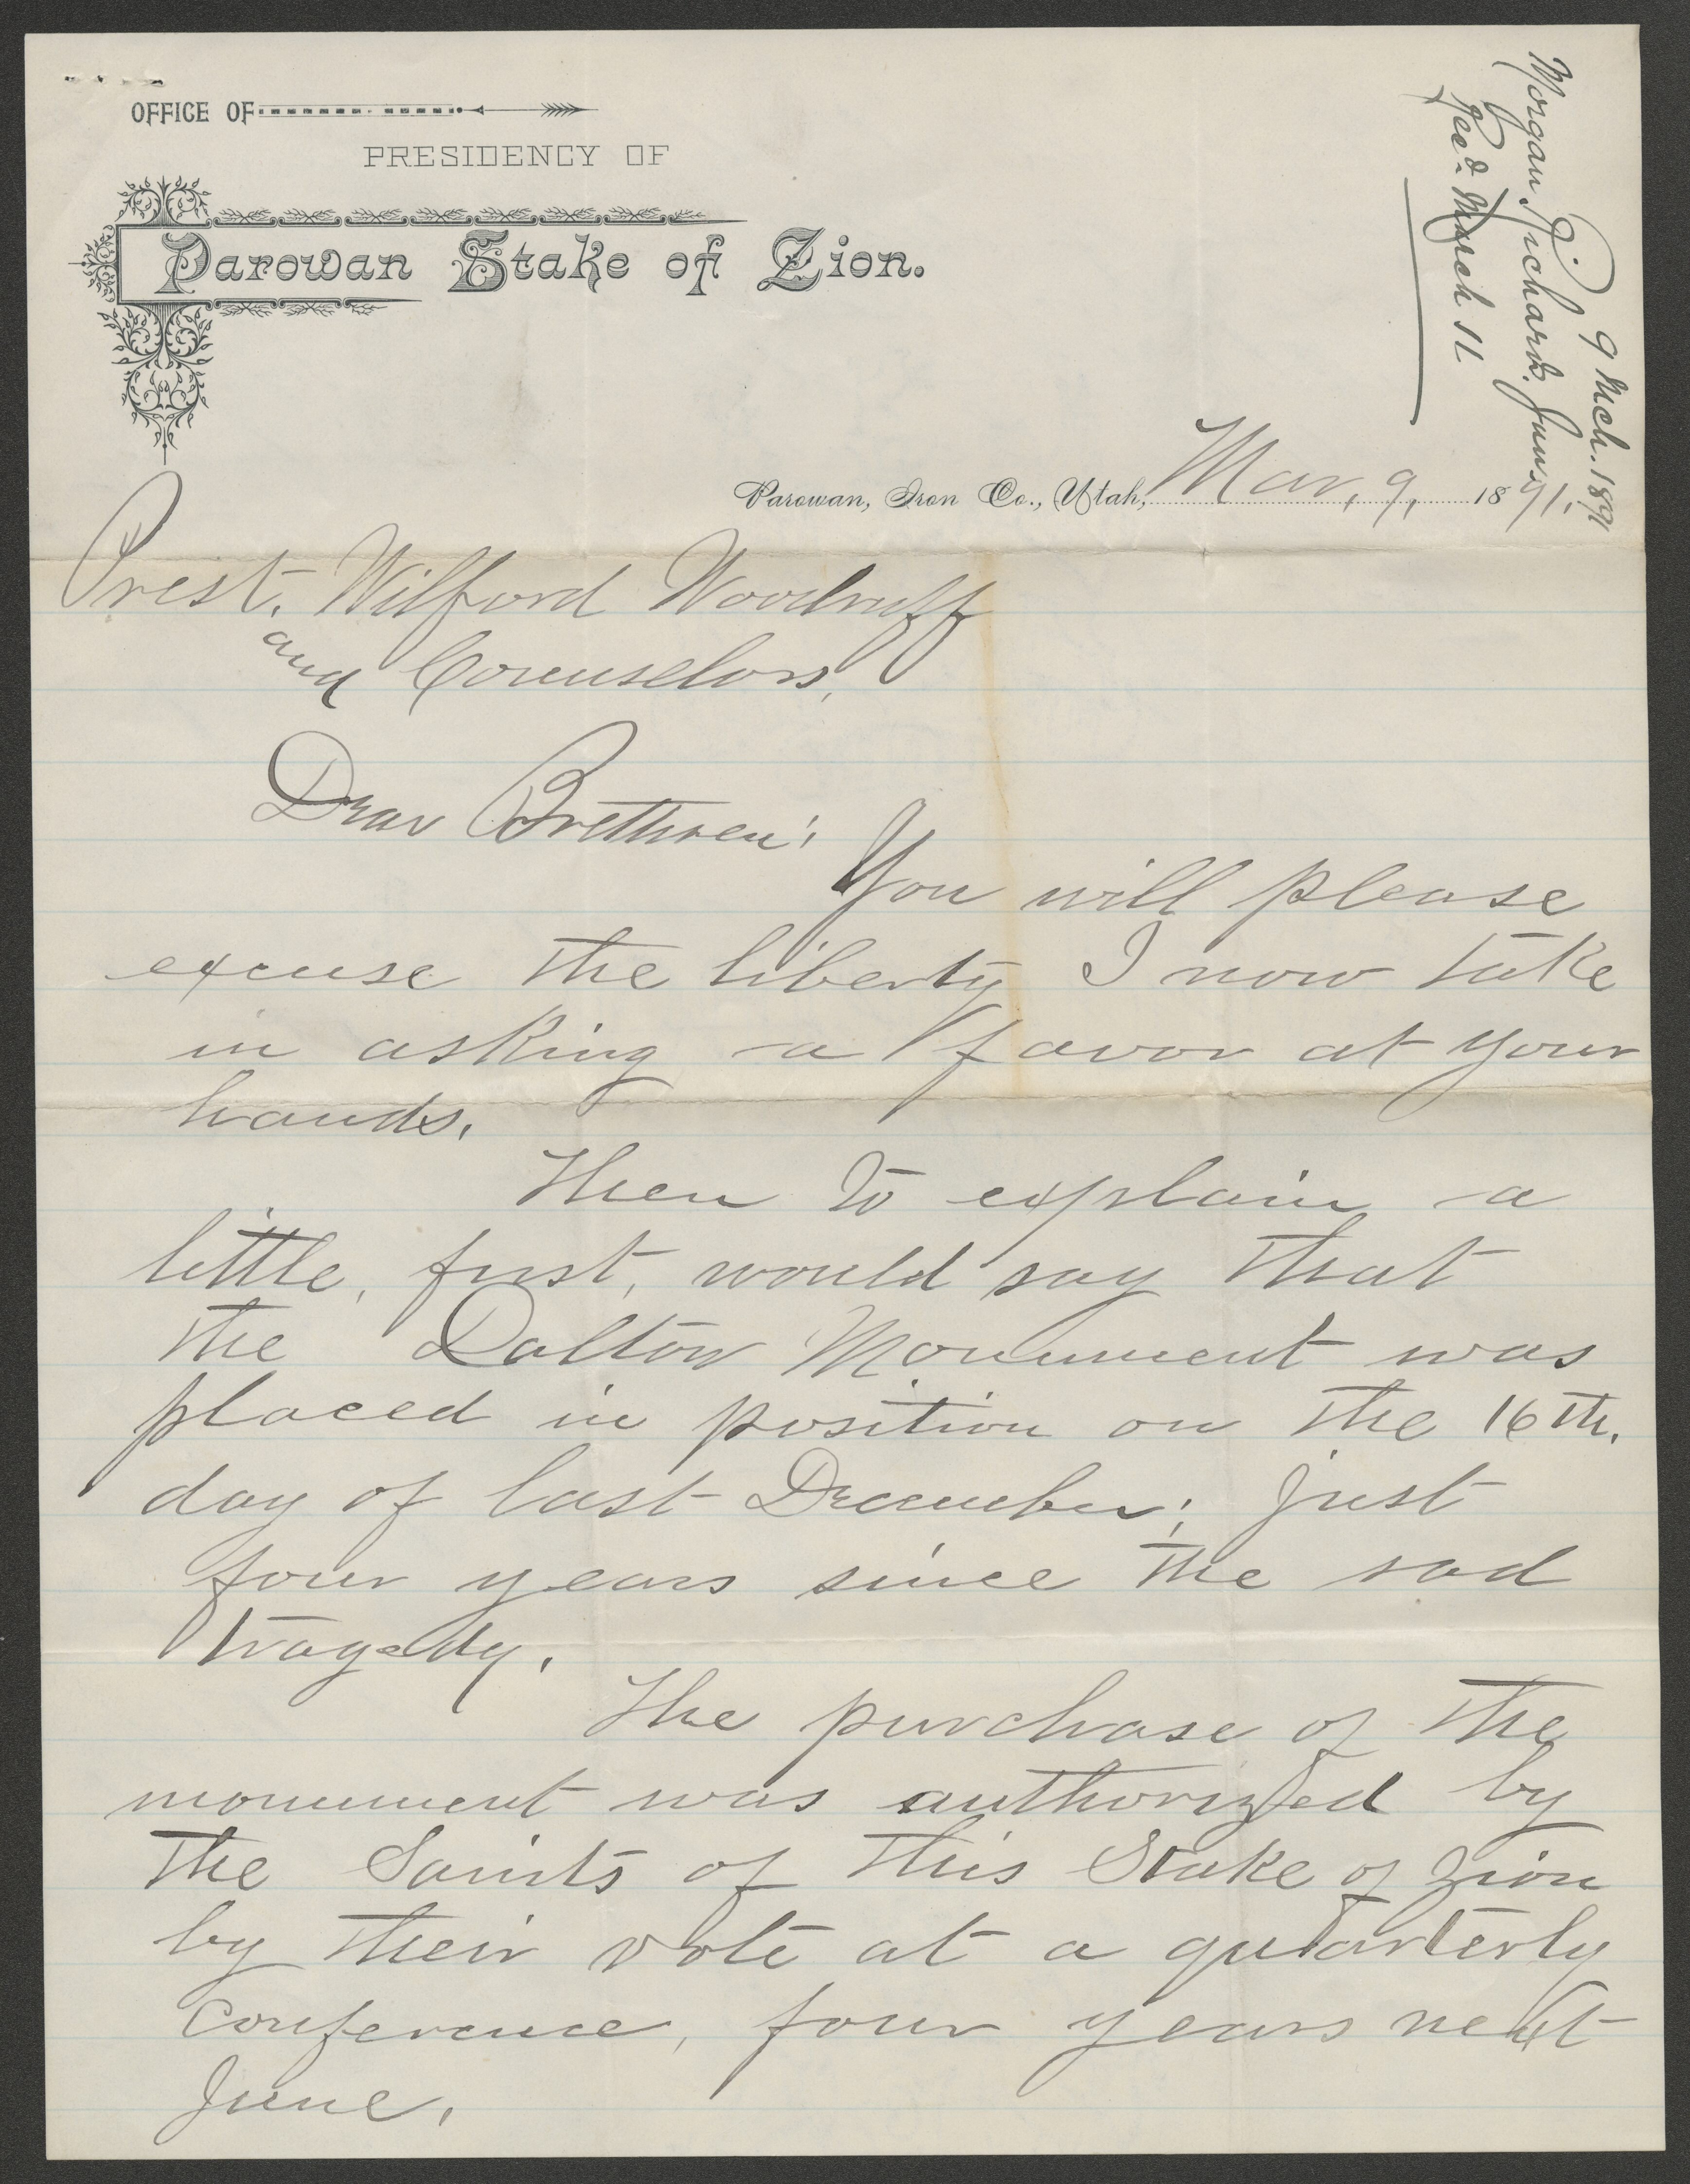 OFFICE OF
PRESIDENCY OF
Parowan Stake of Zion.
9 Mch. 1891
Morgan Richards. Junr
Recd. March 11
Parowan, Iron Co., Utah, Mar, 9, 1891.
Prest. Wilford Woodruff
and Counselors,
Dear Brethren:
You will please
excuse the liberty I now take
in asking a favor at your
hands.
Then to explain a
little, first, would say that
the Dalton Monument was
placed in position on the 16th.
day of last December; just
four years since the sad
tragedy.
The purchase of the
monument was authorized by
the Saints of this Stake of Zion
by their vote at a quarterly
Conference, four years next
June.